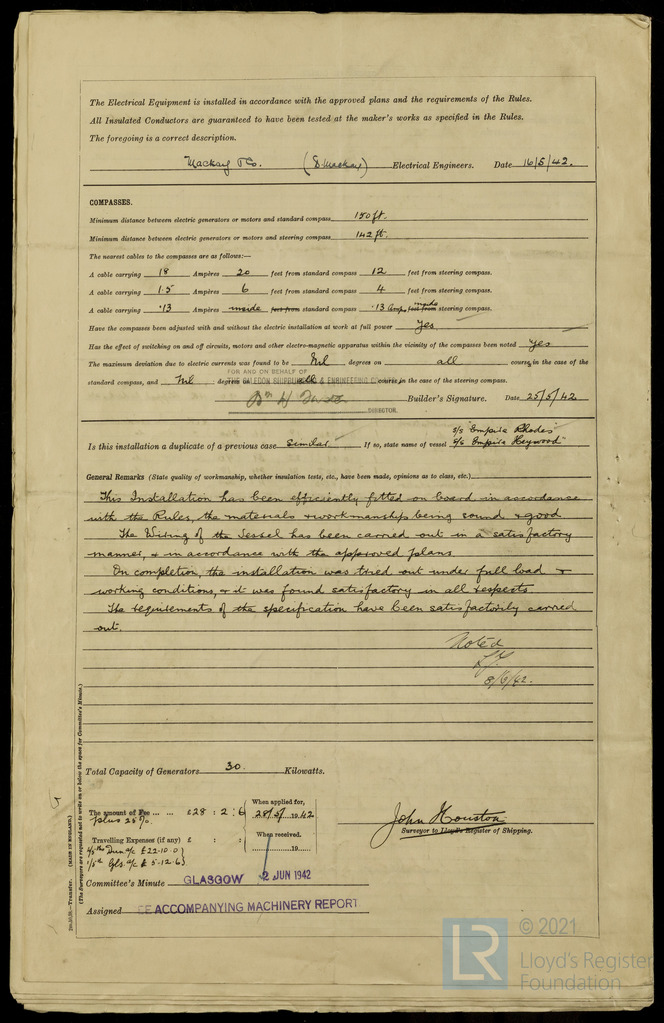 The Electrical Equipment is installed in accordance with the approved plans and the requirements of the Rules.
All Insulated Conductors are guaranteed to have been tested at the maker's works as specified in the Rules.
The foregoing is a correct description.
Mackay & Co. (D Mackay) Electrical Engineers. Date 16/5/42.
COMPASSES.
Minimum distance between electric generators or motors and standard compass 150 ft.
Minimum distance between electric generators or motors and steering compass 142 ft.
The nearest cables to the compasses are as follows:—
A cable carrying 18 Ampères 20 feet from standard compass 12 feet from steering compass.
A cable carrying 1.5 Ampères 6 feet from standard compass 4 feet from steering compass.
A cable carrying .13 Ampères inside feet from standard compass .13 Amp. inside feet from steering compass.
Have the compasses been adjusted with and without the electric installation at work at full power yes
Has the effect of switching on and off circuits, motors and other electro-magnetic apparatus within the vicinity of the compasses been noted yes
The maximum deviation due to electric currents was found to be Nil degrees on all course, in the case of the
FOR AND ON BEHALF OF
standard compass, and Nil degrees on all course, in the case of the steering compass.
THE CALEDON SHIPBUILDING & ENGINEERING CO
Builder's Signature. Date 25/5/42
DIRECTOR.
S/S "Empire Rhodes"
Is this installation a duplicate of a previous case similar If so, state name of vessel S/S "Empire Heywood"
General Remarks (State quality of workmanship, whether insulation tests, etc., have been made, opinions as to class, etc.)
This Installation has been efficiently fitted on board in accordance
with the Rules, the materials & workmanship being sound & good
The Wiring of the Vessel has been carried out in a satisfactory
manner, & in accordance with the approved plans
On completion, the installation was tried out under full load &
working conditions, & it was found satisfactory in all respects.
The requirements of the specification have been satisfactorily carried
out.
Noted
8/6/42.
Total Capacity of Generators 30. Kilowatts.
The amount of Fee ... ... £28 : 2 : 6
plus 25%.
When applied for,
28/5/1942
Travelling Expenses (if any) £ : :
When received,
19
4/5ths Dun a/c £22.10.0
1/5th Gls. a/c £5.12.6
John Houston
Surveyor to Lloyd's Register of Shipping.
Committee's Minute GLASGOW 2 JUN 1942
Assigned SEE ACCOMPANYING MACHINERY REPORT
(The Surveyors are requested not to write on or below the space for Committee's Minute.)
Transfer. (MADE IN ENGLAND.)
LR
© 2021
Lloyd's Register
Foundation